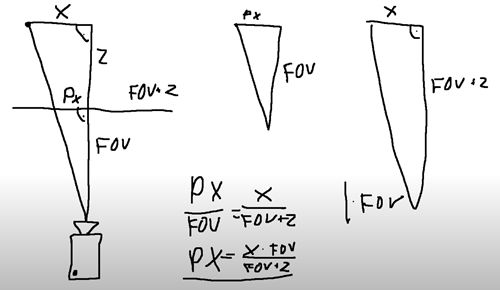 X
Z
Px
FOV+Z
FOV
Px
FOV
X
FOV+Z
PX/FOV = X/FOV+Z
| · FOV
PX = X·FOV/FOV+Z